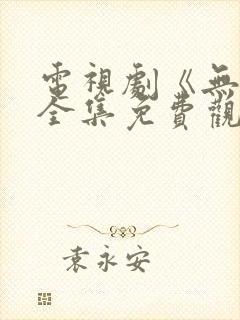 電視劇《無
全集免費觀
袁永安